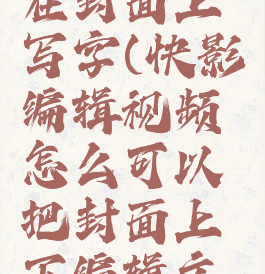 在封面上
写字(快影
编辑视频
怎么可以
把封面上
下编辑